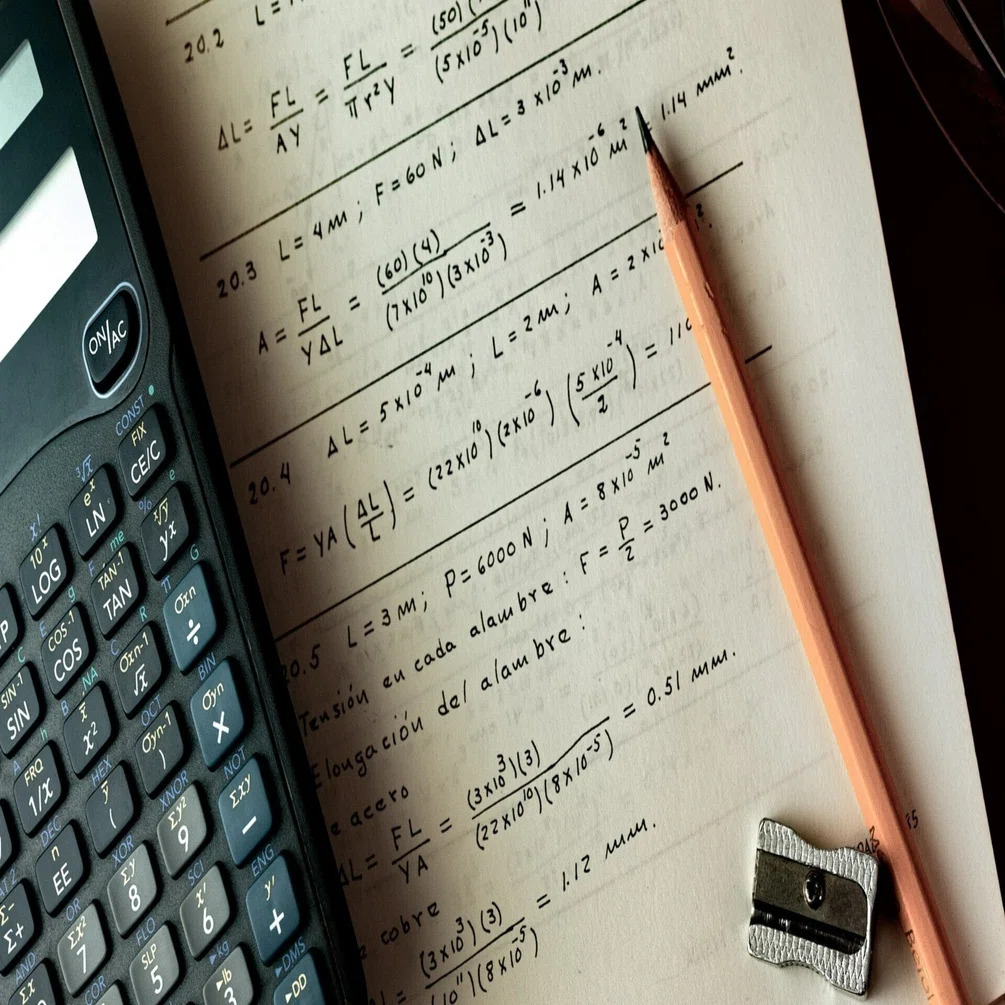 20.2 L =
ΔL = FL/AY = FL/πr²Y = (50)/(5x10⁻⁵)(10¹¹)
20.3 L = 4 m ; F = 60 N ; ΔL = 3 x10⁻³ m.
A = FL/YΔL = (60)(4)/(7x10¹⁰)(3x10⁻³) = 1.14 x10⁻⁶ m² = 1.14 mm².
20.4 ΔL = 5 x10⁻⁴ m ; L = 2 m ; A = 2 x10
F = YA (ΔL/L) = (22x10¹⁰)(2x10⁻⁶) (5 x10⁻⁴/2) = 110
20.5 L = 3 m ; P = 6000 N ; A = 8x10⁻⁵ m²
Tensión en cada alambre : F = P/2 = 3000 N.
Elongación del alambre :
acero
ΔL = FL/YA = (3x10³)(3)/(22x10¹⁰)(8x10⁻⁵) = 0.51 mm.
cobre
= (3x10³)(3)/10¹¹)(8x10⁻⁵) = 1.12 mm.
ON/AC
CONST
FIX
CE/C
³√x
eˣ
LN
%
e
ˣ√y
yx
x!
10ˣ
LOG
me
TAN-1
TAN
G
π
σxn
÷
COS-1
COS
R
σxn-1
√x
BIN
σyn
×
SIN-1
SIN
NA
x̄
x²
OCT
σyn-1
)
NOT
Σxy
−
FRQ
1/x
HEX
ȳ
(
XNOR
Σy²
9
ENG
y'
+
DEC
n
EE
XOR
Σy
8
SCI
x'
6
▸DMS
▸DD
Σ-
Σ+
OR
Σx²
7
FLO
SLP
5
▸kg
▸lb
3
AND
COR